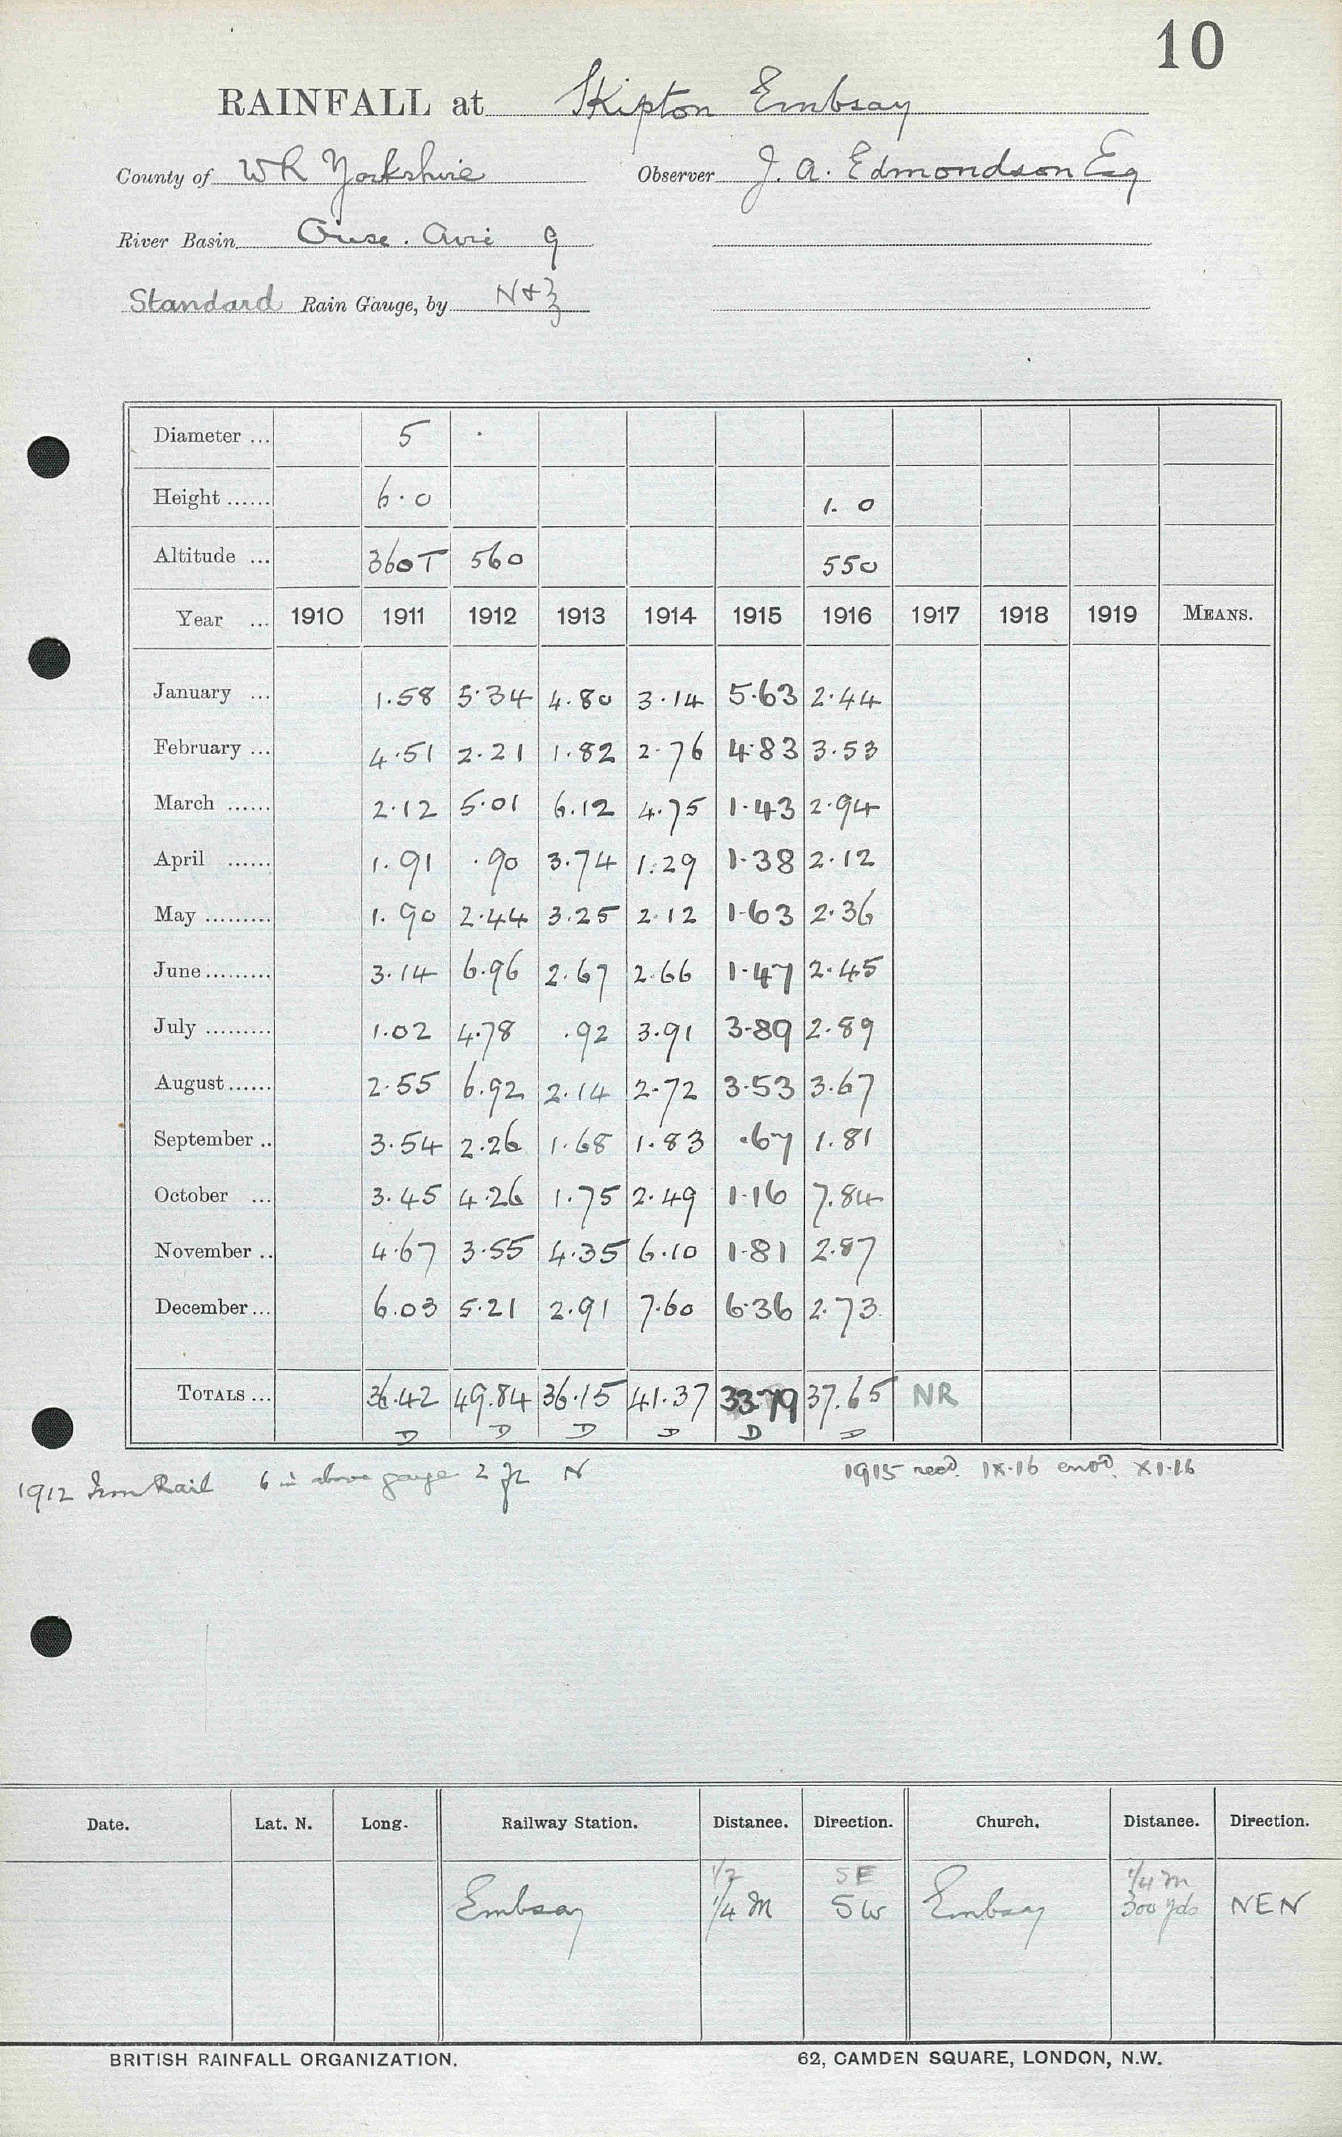 10
RAINFALL at Skipton Embsay
County of WR Yorkshire Observer J. A. Edmondson Esq
River Basin Ouse. Aire 9
Standard Rain Gauge, by N+Z
Diameter ... 5
Height ...... 6.0 1.0
Altitude ... 360T 560 550
Year ... 1910 1911 1912 1913 1914 1915 1916 1917 1918 1919 MEANS.
January ... 1.58 5.34 4.80 3.14 5.63 2.44
February ... 4.51 2.21 1.82 2.76 4.83 3.53
March ...... 2.12 5.01 6.12 4.75 1.43 2.94
April ...... 1.91 .90 3.74 1.29 1.38 2.12
May ......... 1.90 2.44 3.25 2.12 1.63 2.36
June ......... 3.14 6.96 2.67 2.66 1.47 2.45
July ......... 1.02 4.78 .92 3.91 3.89 2.89
August ...... 2.55 6.92 2.14 2.72 3.53 3.67
September .. 3.54 2.26 1.68 1.83 .67 1.81
October ... 3.45 4.26 1.75 2.49 1.16 7.84
November .. 4.67 3.55 4.35 6.10 1.81 2.87
December ... 6.03 5.21 2.91 7.60 6.36 2.73
TOTALS ... 36.42 49.84 36.15 41.37 33.79 37.65 NR
D D D D D D
1912 Iron Rail 6 in above gauge 2 ft N 1915 recd. IX.16 entd. XI.16
Date. Lat. N. Long. Railway Station. Distance. Direction. Church. Distance. Direction.
1/2 SE 1/4 m
Embsay 1/4 M SW Embsay 300 yds NEN
BRITISH RAINFALL ORGANIZATION. 62, CAMDEN SQUARE, LONDON, N.W.